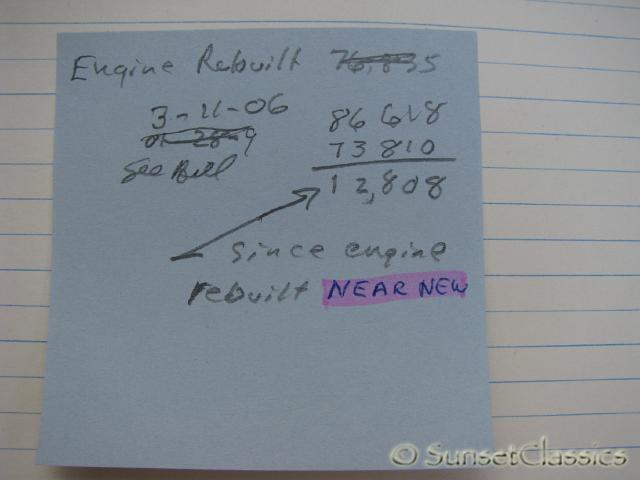 Engine Rebuilt 76,835
3-11-06
86 618
73 810
See Bill
12,808
since engine
rebuilt NEAR NEW
© SunsetClassics